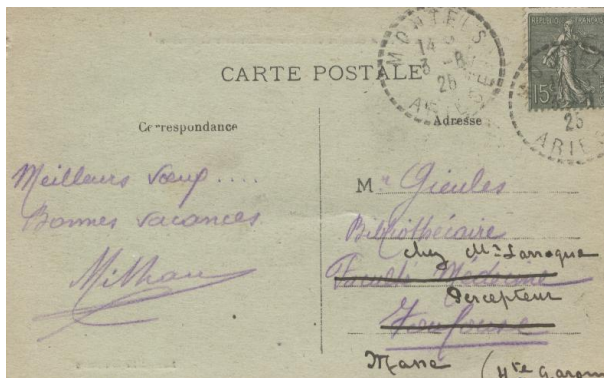 CARTE POSTALE
MONTELS
14
3 -8
25
ARIEGE
RÉPUBLIQUE FRANÇAISE
15c
25
ARIE
Correspondance
Adresse
Meilleurs vœux ....
Bonnes vacances
Milhau
Mr Gieules
Bibliothécaire
chez Mr Larroque
Faculté Médecine
Percepteur
Toulouse
(Hte Garonn